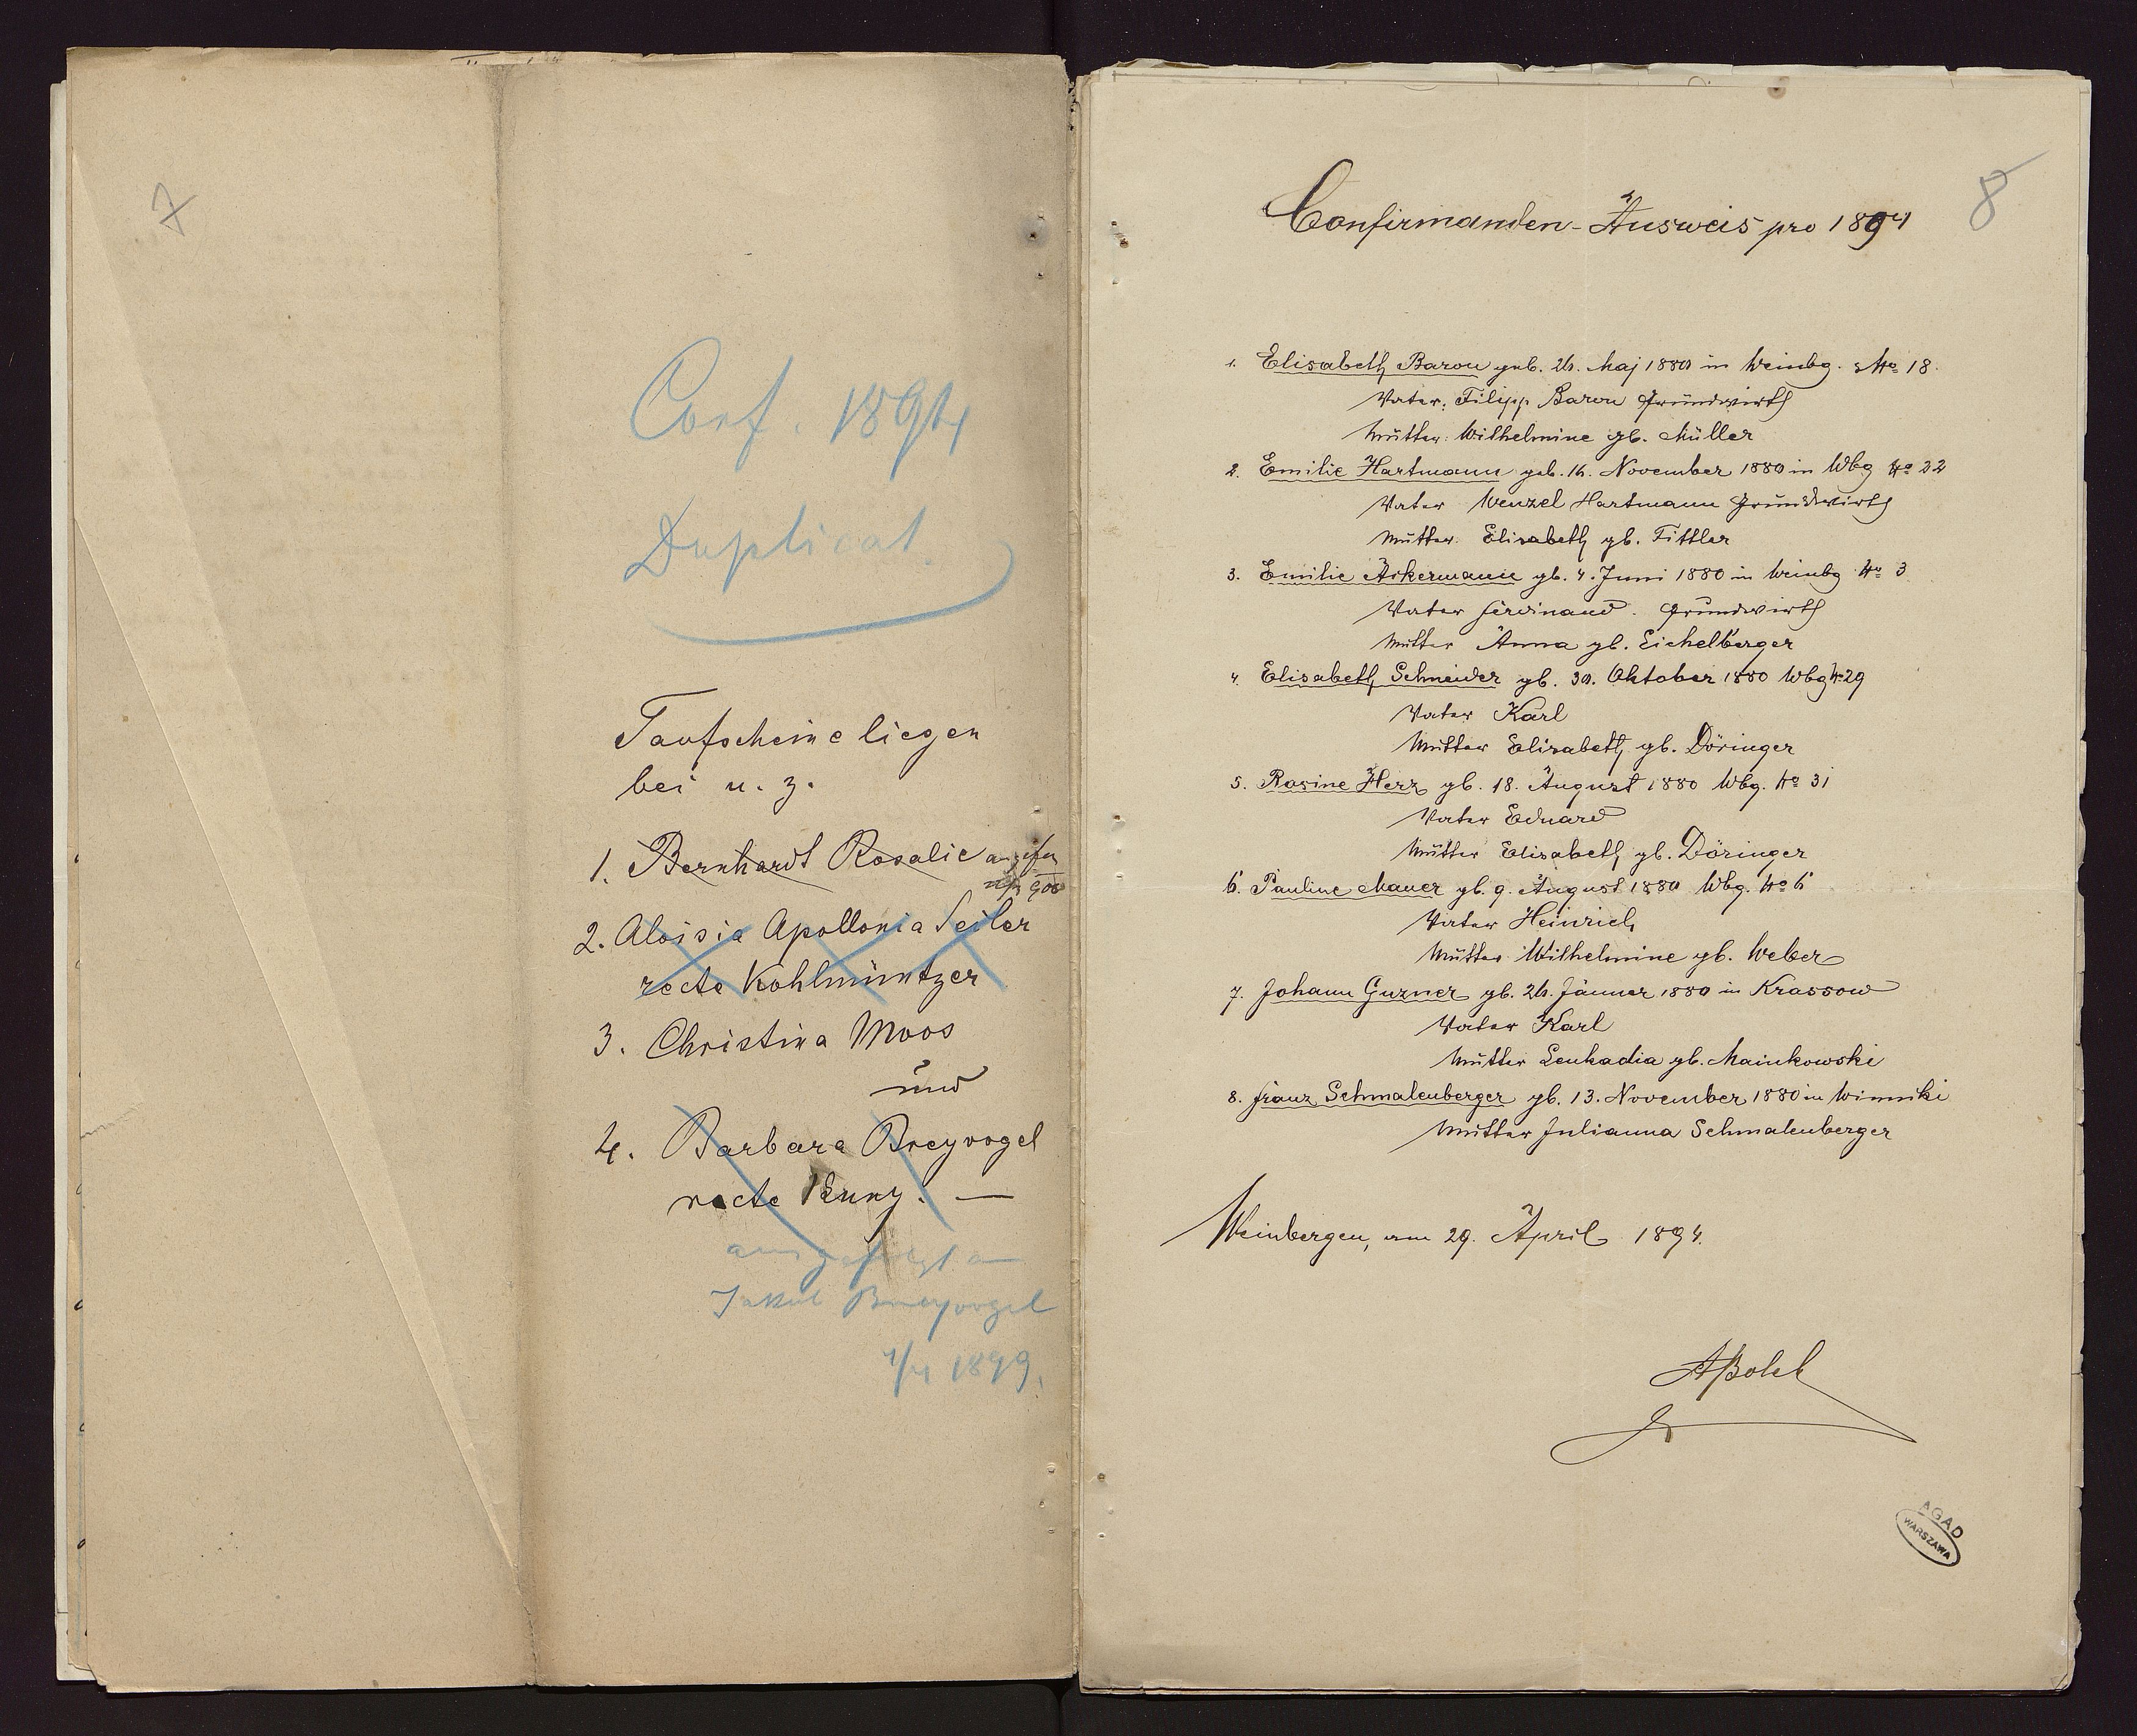 7
Conf. 1894
Duplicat.
Taufscheine liegen
bei u. z.
1. Bernhardt Rosalie
2. Aloisia Apollonia Seiler
recte Kohlmüntzer
3. Christina Moos
und
4. Barbara Breyvogel
recte Kuny. —
ausgefolgt an
Jakob Breyvogel
1899.
8
Confirmanden-Ausweis pro 1894
1. Elisabeth Baron geb. 26. Maj 1880 in Weinbg. No 18.
Vater: Filipp Baron Grundwirth
Mutter: Wilhelmine gb. Müller
2. Emilie Hartmann geb. 16. November 1880 in Wbg No 22
Vater Wenzel Hartmann Grundwirth
Mutter. Elisabeth gb. Tittler
3. Emilie Akermann gb. 4. Juni 1880 in Weinbg No 3
Vater Ferdinand. Grundwirth
Mutter Anna gb. Eichelberger
4. Elisabeth Schneider gb. 30. Oktober 1880 Wbg No 29
Vater Karl
Mutter Elisabeth gb. Döringer
5. Rosine Herz gb. 18. August 1880 Wbg. No 31
Vater Eduard
Mutter Elisabeth gb. Döringer
6. Pauline Mauer gb. 9. August 1880 Wbg. No 6
Vater Heinrich
Mutter Wilhelmine gb. Weber
7. Johann Guzner gb. 26. Jänner 1880 in Krassow
Vater Karl
Mutter Leukadia gb. Mainkowski
8. Franz Schmalenberger gb. 13. November 1880 in Winniki
Mutter Julianna Schmalenberger
Weinbergen, am 29. April 1894.
AGAD
WARSZAWA